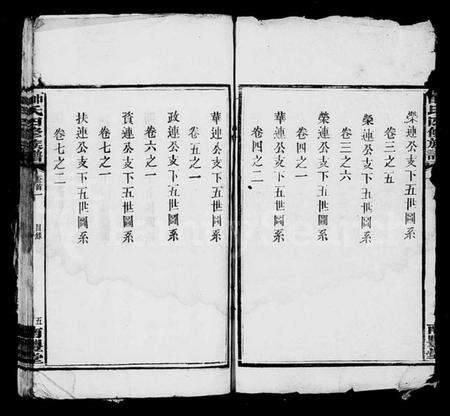 卷三之五
榮連公支下五世圖系
卷三之六
榮連公支下五世圖系
卷四之一
華連公支下五世圖系
卷四之二
華連公支下五世圖系
卷五之一
政連公支下五世圖系
卷六之一
資連公支下五世圖系
卷七之一
扶連公支下五世圖系
卷七之二
氏四修族譜
卷首一
目錄
五
南豐堂